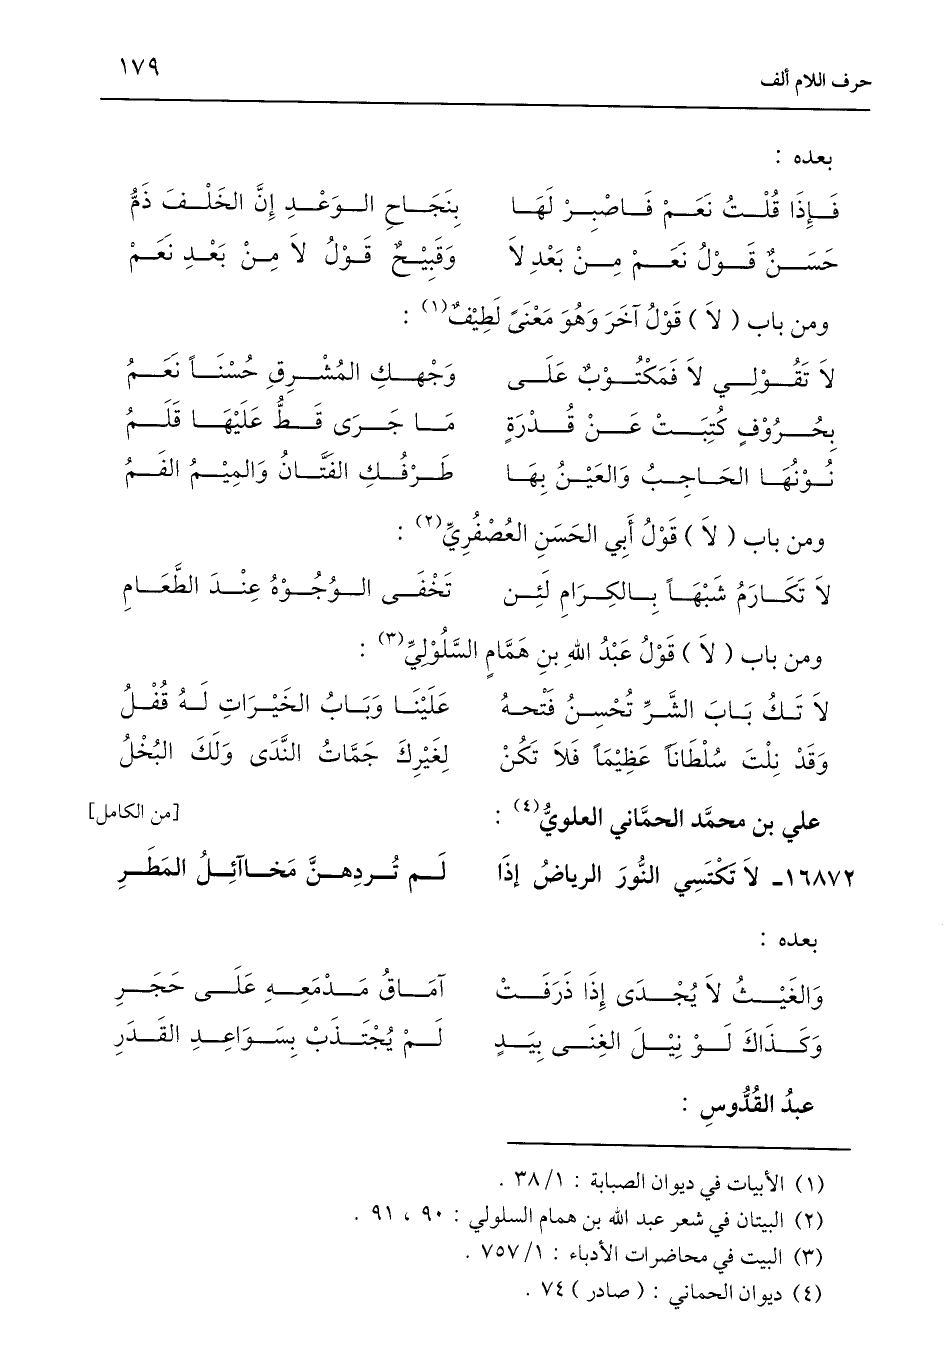 حرف اللام ألف ١٧٩
بعده :
فَإِذَا قُلْتُ نَعَمْ فَاصْبِرْ لَهَا بِنَجَاحِ الوَعْدِ إِنَّ الخَلْفَ ذَمُّ
حَسَنٌ قَوْلُ نَعَمْ مِنْ بَعْدِ لاَ وَقَبِيْحٌ قَوْلُ لاَ مِنْ بَعْدِ نَعَمْ
ومن باب ( لاَ ) قَوْلُ آخَرَ وَهُوَ مَعْنَىً لَطِيْفٌ(١) :
لاَ تَقُوْلِي لاَ فَمَكْتُوْبٌ عَلَى وَجْهِكِ المُشْرِقِ حُسْنَاً نَعَمُ
بِحُرُوْفٍ كُتِبَتْ عَنْ قُدْرَةٍ مَا جَرَى قَطُّ عَلَيْهَا قَلَمُ
نُوْنُهَا الحَاجِبُ وَالعَيْنُ بِهَا طَرْفُكِ الفَتَّانُ وَالمِيْمُ الفَمُ
ومن باب ( لاَ ) قَوْلُ أَبِي الحَسَنِ العُصْفُرِيِّ(٢) :
لاَ تَكَارَمُ شَبْهَاً بِالكِرَامِ لَئِن تَخْفَى الوُجُوْهُ عِنْدَ الطَّعَامِ
ومن باب ( لاَ ) قَوْلُ عَبْدُ اللهِ بنِ هَمَّامٍ السَّلُوْلِيِّ(٣) :
لاَ تَكُ بَابَ الشَّرِّ تُحْسِنُ فَتْحهُ عَلَيْنَا وَبَابُ الخَيْرَاتِ لَهُ قُفْلُ
وَقَدْ نِلْتَ سُلْطَاناً عَظِيْمَاً فَلاَ تَكُنْ لِغَيْرِكَ جَمَّاتُ النَّدَى وَلَكَ البُخْلُ
علي بن محمَّد الحمَّاني العلويُّ(٤) : [من الكامل]
١٦٨٧٢ـ لاَ تَكْتَسِي النُّورَ الرياضُ إذَا لَم تُردِهنَّ مَخاآئِلُ المَطَرِ
بعده :
وَالغَيْثُ لاَ يُجْدَى إِذَا ذَرَفَتْ آمَاقُ مَدْمَعِهِ عَلَى حَجَرِ
وَكَذَاكَ لَوْ نِيْلَ الغِنَى بِيَدٍ لَمْ يُجْتَذَبْ بِسَوَاعِدِ القَدَرِ
عبدُ القُدُّوسِ :
(١) الأبيات في ديوان الصبابة : ١/ ٣٨ .
(٢) البيتان في شعر عبد الله بن همام السلولي : ٩٠ ، ٩١ .
(٣) البيت في محاضرات الأدباء : ١/ ٧٥٧ .
(٤) ديوان الحماني : ( صادر ) ٧٤ .